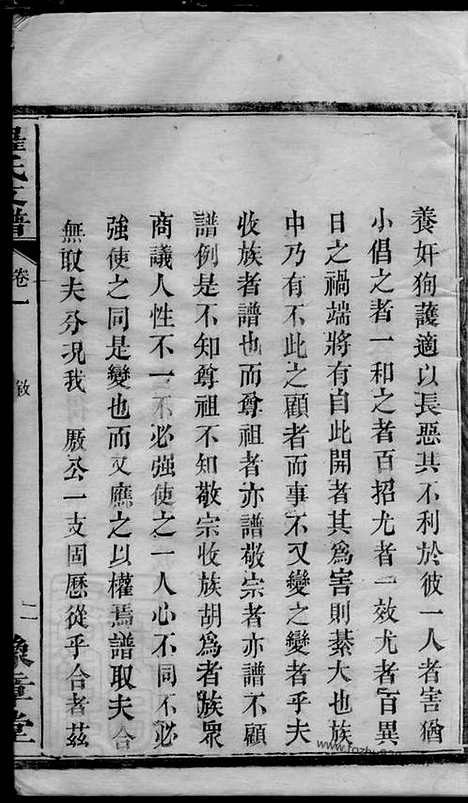 養奸狥護適以長惡其不利於彼一人者害猶
小倡之者一和之者百招尤者一效尤者百異
日之禍端將有自此開者其爲害則綦大也族
中乃有不此之顧者而事不又變之變者乎夫
收族者譜也而尊祖者亦譜敬宗者亦譜不顧
譜例是不知尊祖不知敬宗收族胡爲者族眾
商議人性不一不必強使之一人心不同不必
強使之同是變也而又應之以權焉譜取夫合
無取夫分況我 厫公一支固歷從乎合者茲
羅氏支譜
卷一
敘
二
豫章堂